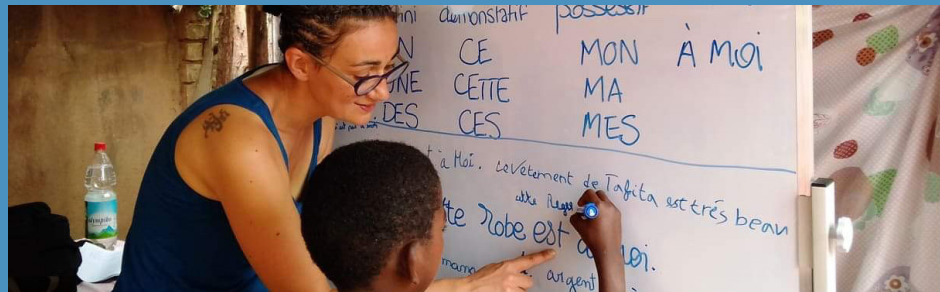 démonstratif possessif
CE MON À MOI
UNE CETTE MA
DES CES MES
à Moi. Le vêtement de Tafita est très beau
robe est à moi.
argent